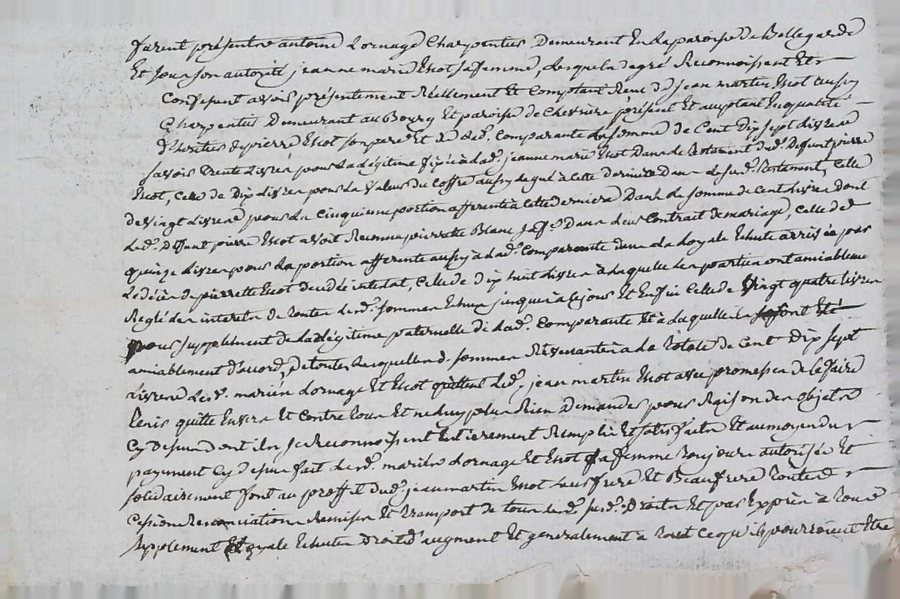 furent présentre antoine Lornage Charpentier Demeurant En Laparoisse de Bellegarde
Et sous son autorité jeanne marie Thiot sa femme, Lesquels de gré Reconnoissent Et
Confessent avoir présentement Réellement Et Comptant Receu de jean martin Thiot aussy
Charpentier Demeurant au Bourg Et paroisse de Chevrieres présent Et acceptant En qualité
D'héritier de pierre Thiot son pere Et de lad. Comparante La somme de Cent Dix sept Livres
savoir Trente Livres pour La Légitime figée à lad. jeanne marie Thiot Dans le Testament dud. Deffunt pierre
Thiot, Celle de Dix Livres pour La valeur du Coffre aussy Légué à Cette derniere Dans Led. Testament, Celle
de vingt Livres pour La Cinquieme portion afferente à Cette derniere Dans La somme de Cent Livres dont
Led. Deffunt pierre Thiot avoit Reconnu pierrette Blanc sa fe. Dans Leur Contrait de mariage, Celle de
quinze Livres pour La portion afferente aussy à Lad. Comparante Dans La Loyale Echute arrivée par
Le décès de pierrette Thiot décédée intestat, Celle de Dix huit Livres à Laquelle Les parties ont amiablement
Réglé Les interets de Toutes Lesd. sommes Echus jusques à Ce jour Et Enfin Celle de vingt quatre Livres
pour supplément de La Légitime paternelle de Lad. Comparante Et à Laquelle ils se sont Eté
amiablement D'accord, De toutes Lesquelles d. sommes Revenantes à La Totale de Cent Dix sept
Livres Lesd. mariés Lornage Et Thiot quittent Led. jean martin Thiot avec promesse de Le faire
Tenir quitte Envers Et Contre Tous Et ne Luy plus Rien Demander pour Raison des objets
Cy dessus dont ils se Reconnoissent Entierement Remplis Et satisfaits Et au moyen du
payement Cy dessus fait Lesd. mariés Lornage Et Thiot sa femme Toujours autorisée Et
solidairement font au proffit dud. jean martin Thiot Leur frere Et Beaufrere Toutes
Cession Renonciation Remise Et Transport de tous Lesd. susd. Droits Et par Exprès à Tous
supplement Loyale Echutes Droits d'augment Et generalement à Tout Ce qu'ils pourroient Etre